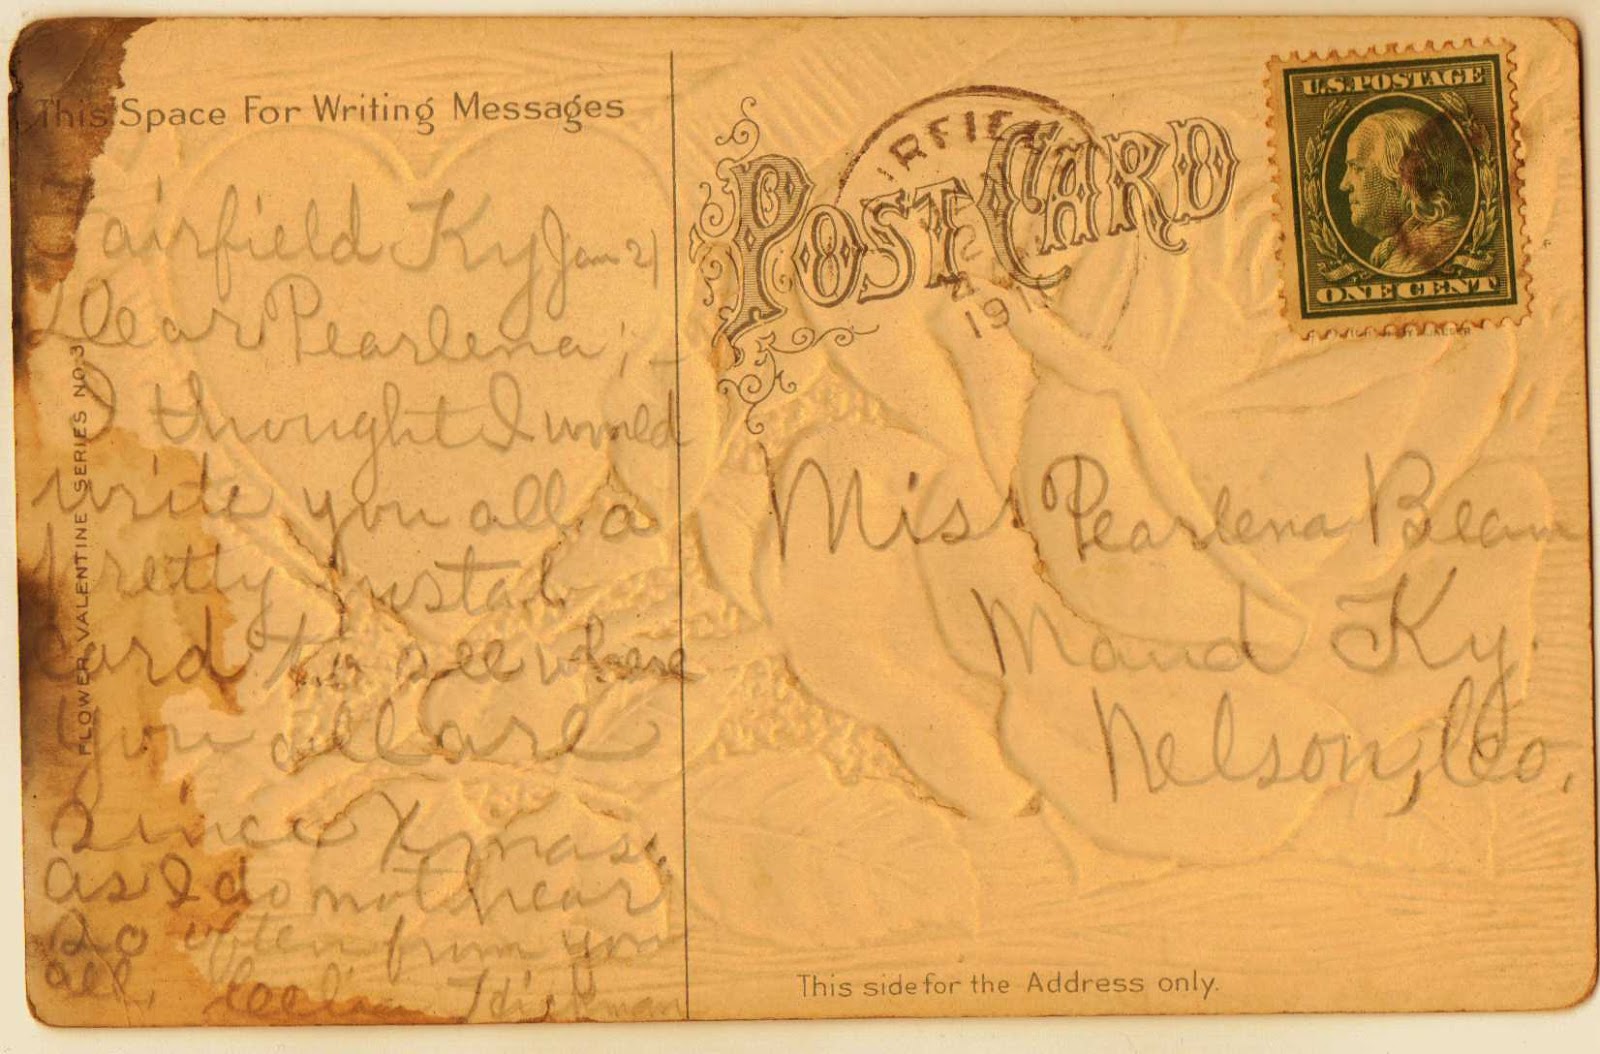 This Space For Writing Messages
Fairfield Ky Jan 21
Dear Pearlena; -
I thought I would
write you all a
Pretty Postal
Card to see where
you all are
Since Xmas
As I do not hear
So often from you
all, Hickman
FLOWER VALENTINE SERIES NO. 3
POST CARD
IRFIEL
191
U.S. POSTAGE
ONE CENT
Miss Pearlena Beam
Maud Ky.
Nelson, Co.
This side for the Address only.